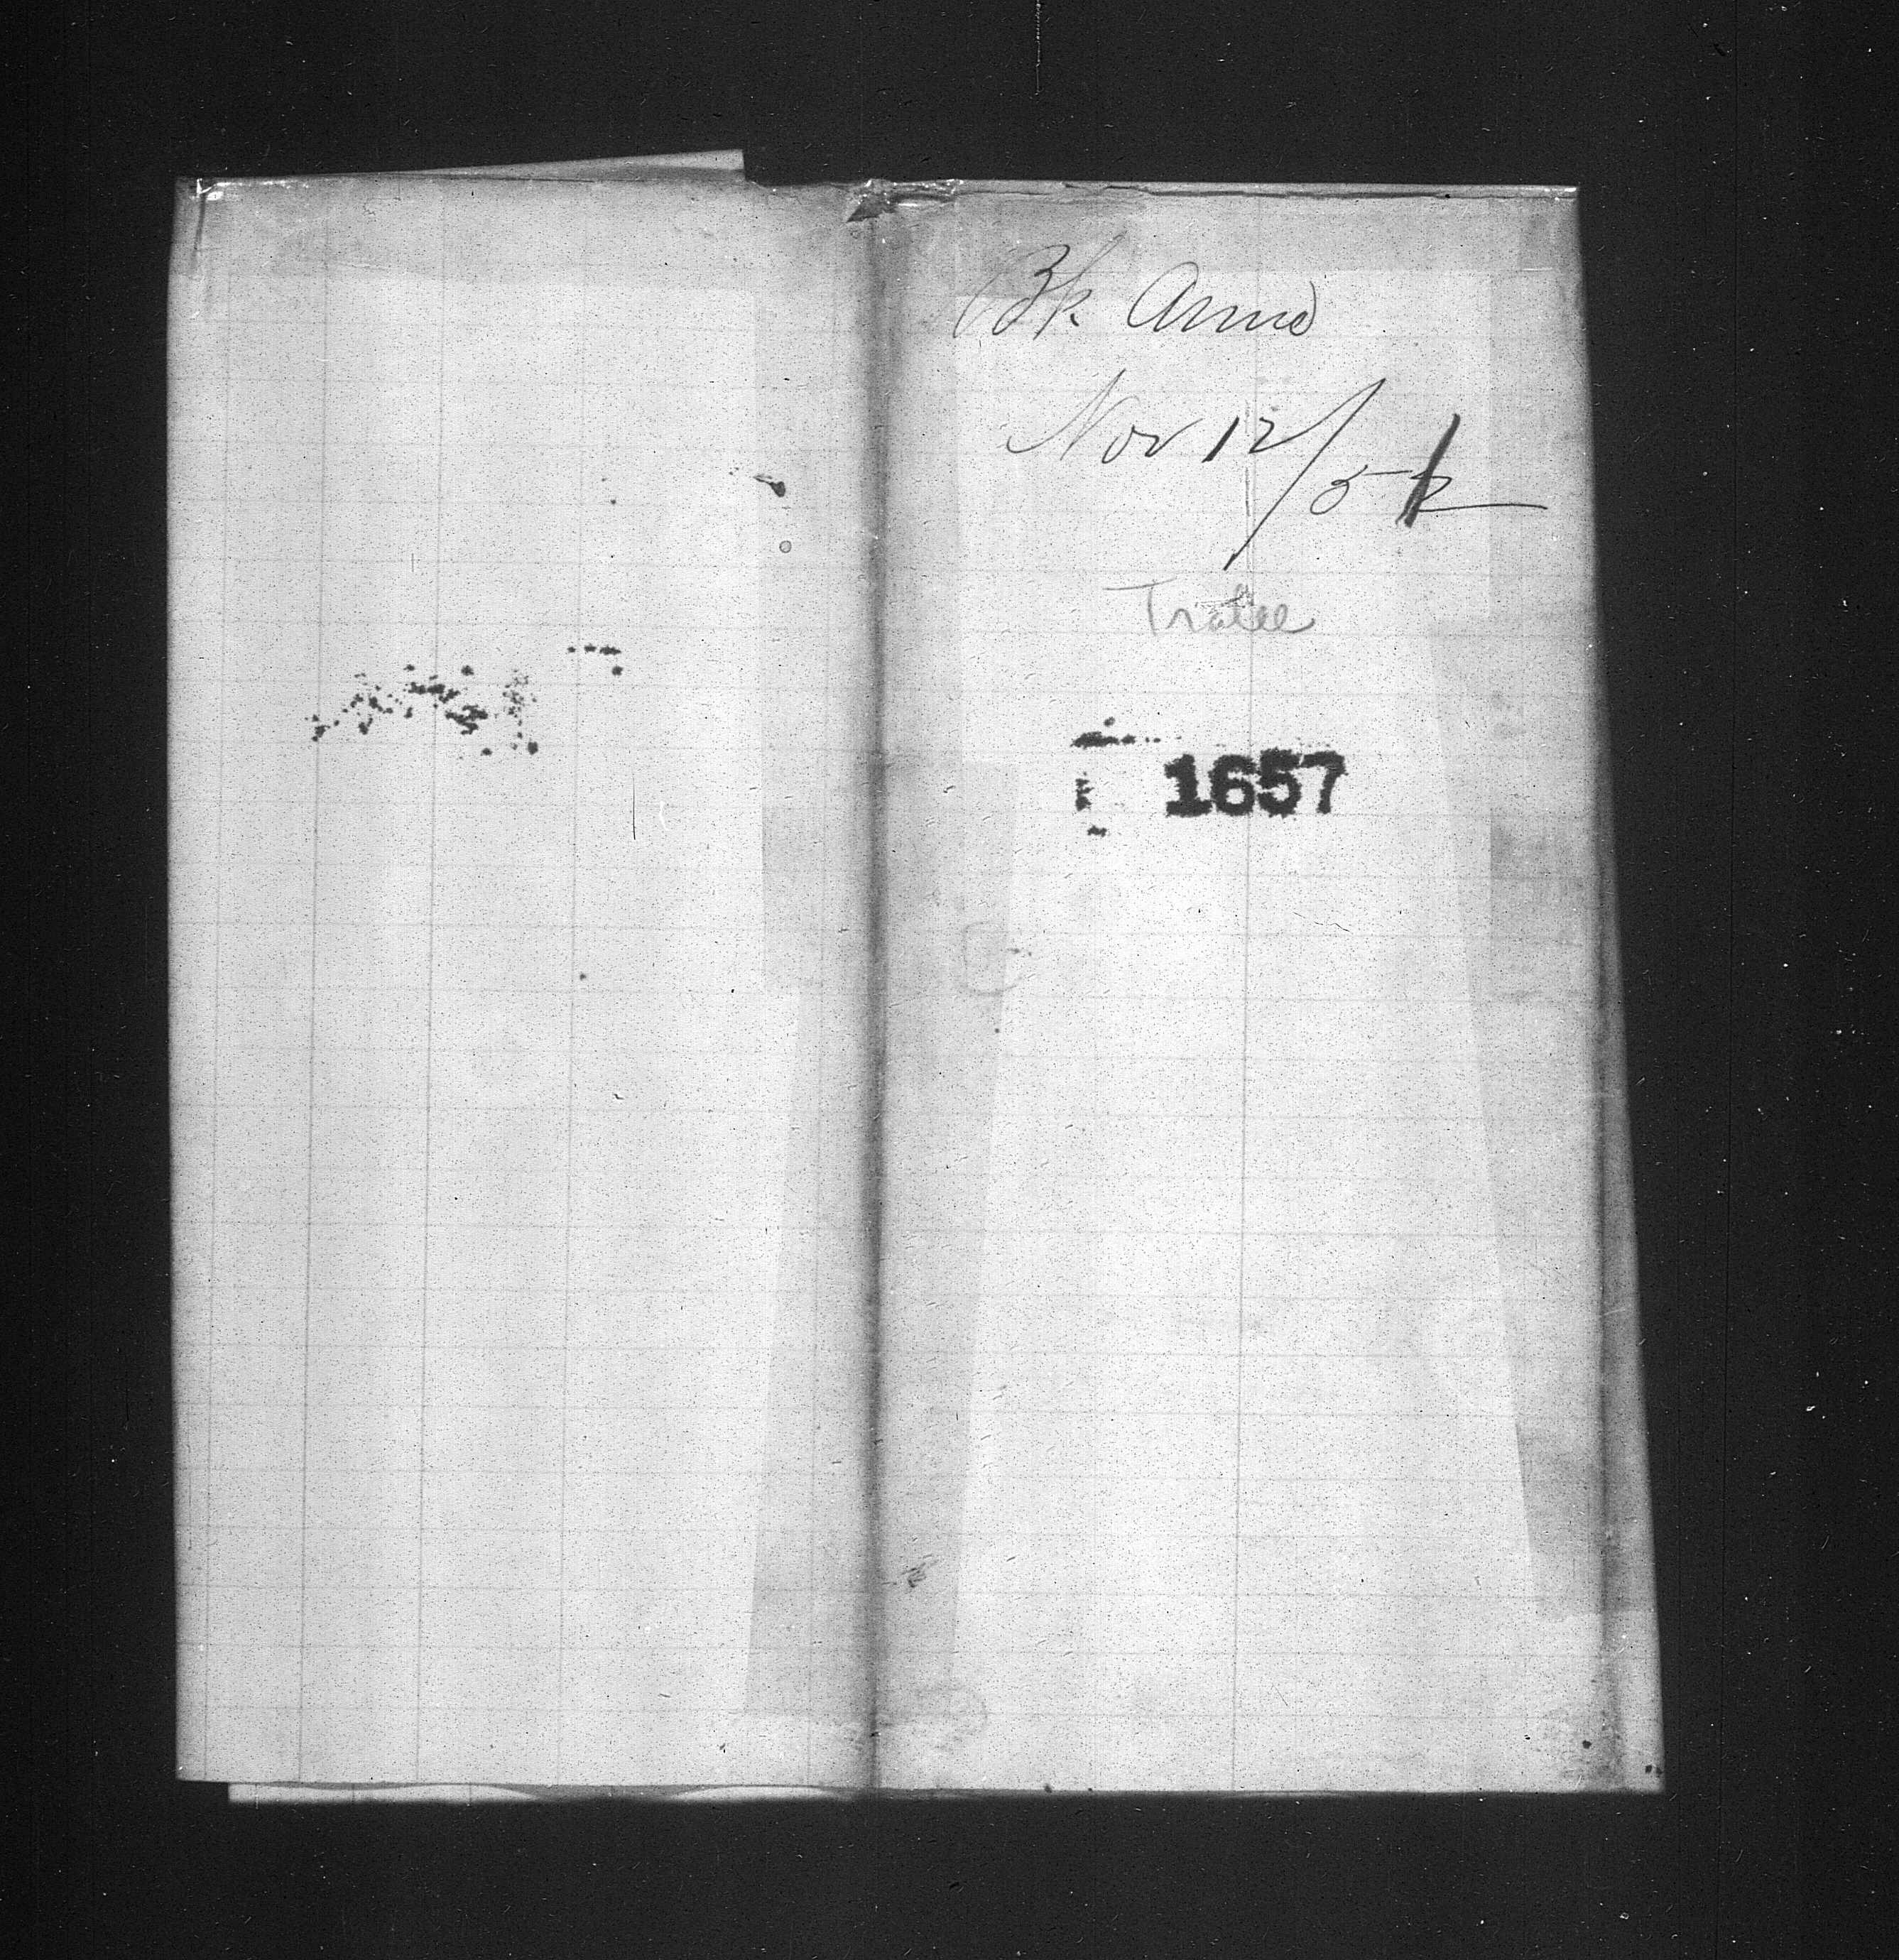 Bk Anna
Nov 12/51
Tralee
1657